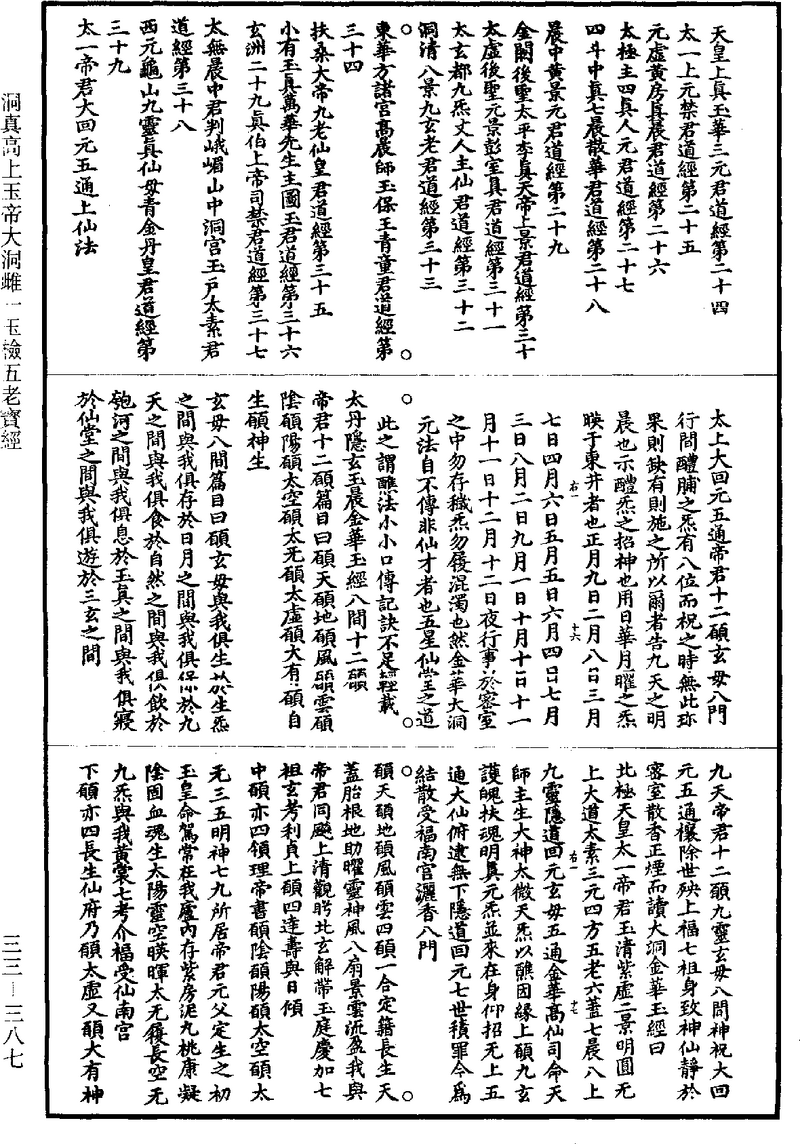 天皇上真玉華三元君道經第二十四
太一上元禁君道經第二十五
元虛黃房真晨君道經第二十六
太極主四真人元君道經第二十七
四斗中真七晨散華君道經第二十八
晨中黃景元君道經第二十九
金闕後聖太平李真天帝上景君道經第三十
太虛後聖元景彭室真君道經第三十一
太玄都九炁丈人主仙君道經第三十二
洞清八景九玄老君道經第三十三
東華方諸宮高晨師玉保王青童君道經第
三十四
扶桑大帝九老仙皇君道經第三十五
小有玉真萬華先生主圖玉君道經第三十六
玄洲二十九真伯上帝司禁君道經第三十七
太無晨中君判峨嵋山中洞宮玉戶太素君
道經第三十八
西元龜山九靈真仙母青金丹皇君道經第
三十九
太一帝君大回元五通上仙法
太上大回元五通帝君十二願玄母八門
行間醴脯之炁有八位而祝之時無此珎
果則缺有則施之所以爾者告九天之明
晨也示醴炁之招神也用日華月曜之炁
映于東井者也正月九日二月八日三月
右一
十六
七日四月六日五月五日六月四日七月
三日八月二日九月一日十月十日十一
月十一日十二月十二日夜行事於密室
之中勿存穢炁勿履混濁也然金華大洞
元法自不傳非仙才者也五星仙堂之道
此之謂醮法小小口傳記訣不足輕載
太丹隱玄玉晨金華玉經八間十二願
帝君十二願篇目曰願天願地願風願雲願
陰願陽願太空願太无願太虛願大有願自
生願神生
玄母八間篇目曰願玄母與我俱生於生炁
之間與我俱存於日月之間與我俱保於九
天之間與我俱食於自然之間與我俱飲於
匏河之間與我俱息於玉真之間與我俱寢
於仙堂之間與我俱遊於三玄之間
九天帝君十二願九靈玄母八間神祝大回
元五通禳除世殃上福七祖身致神仙靜於
密室散香正煙而讀大洞金華玉經曰
此極天皇太一帝君玉清紫虛二景明圓无
上大道太素三元四方五老六蓋七晨八上
右一
十七
九靈隱道回元玄母五通金華高仙司命天
師主生大神太微天炁以醮因緣上願九玄
護魄扶魂明真元炁並來在身仰招无上五
通大仙俯逮無下隱道回元七世積罪令爲
結散受福南宮灑香八門
願天願地願風願雲四願一合定籍長生天
蓋胎根地助曜靈神風八扇景雲流盈我與
帝君同飈上清觀眄北玄解帶玉庭慶加七
祖玄考利貞上願四達壽與日傾
中願亦四領理帝書願陰願陽願太空願太
无三五明神七九所居帝君元父定生之初
玉皇命駕常在我廬內存紫房泥丸桃康凝
陰固血魂生太陽靈空暎暉太无鍰長空无
九炁與我黃裳七考介福受仙南宮
下願亦四長生仙府乃願太虛又願大有神
洞真高上玉帝大洞雌一玉檢五老寶經
三三—三八七